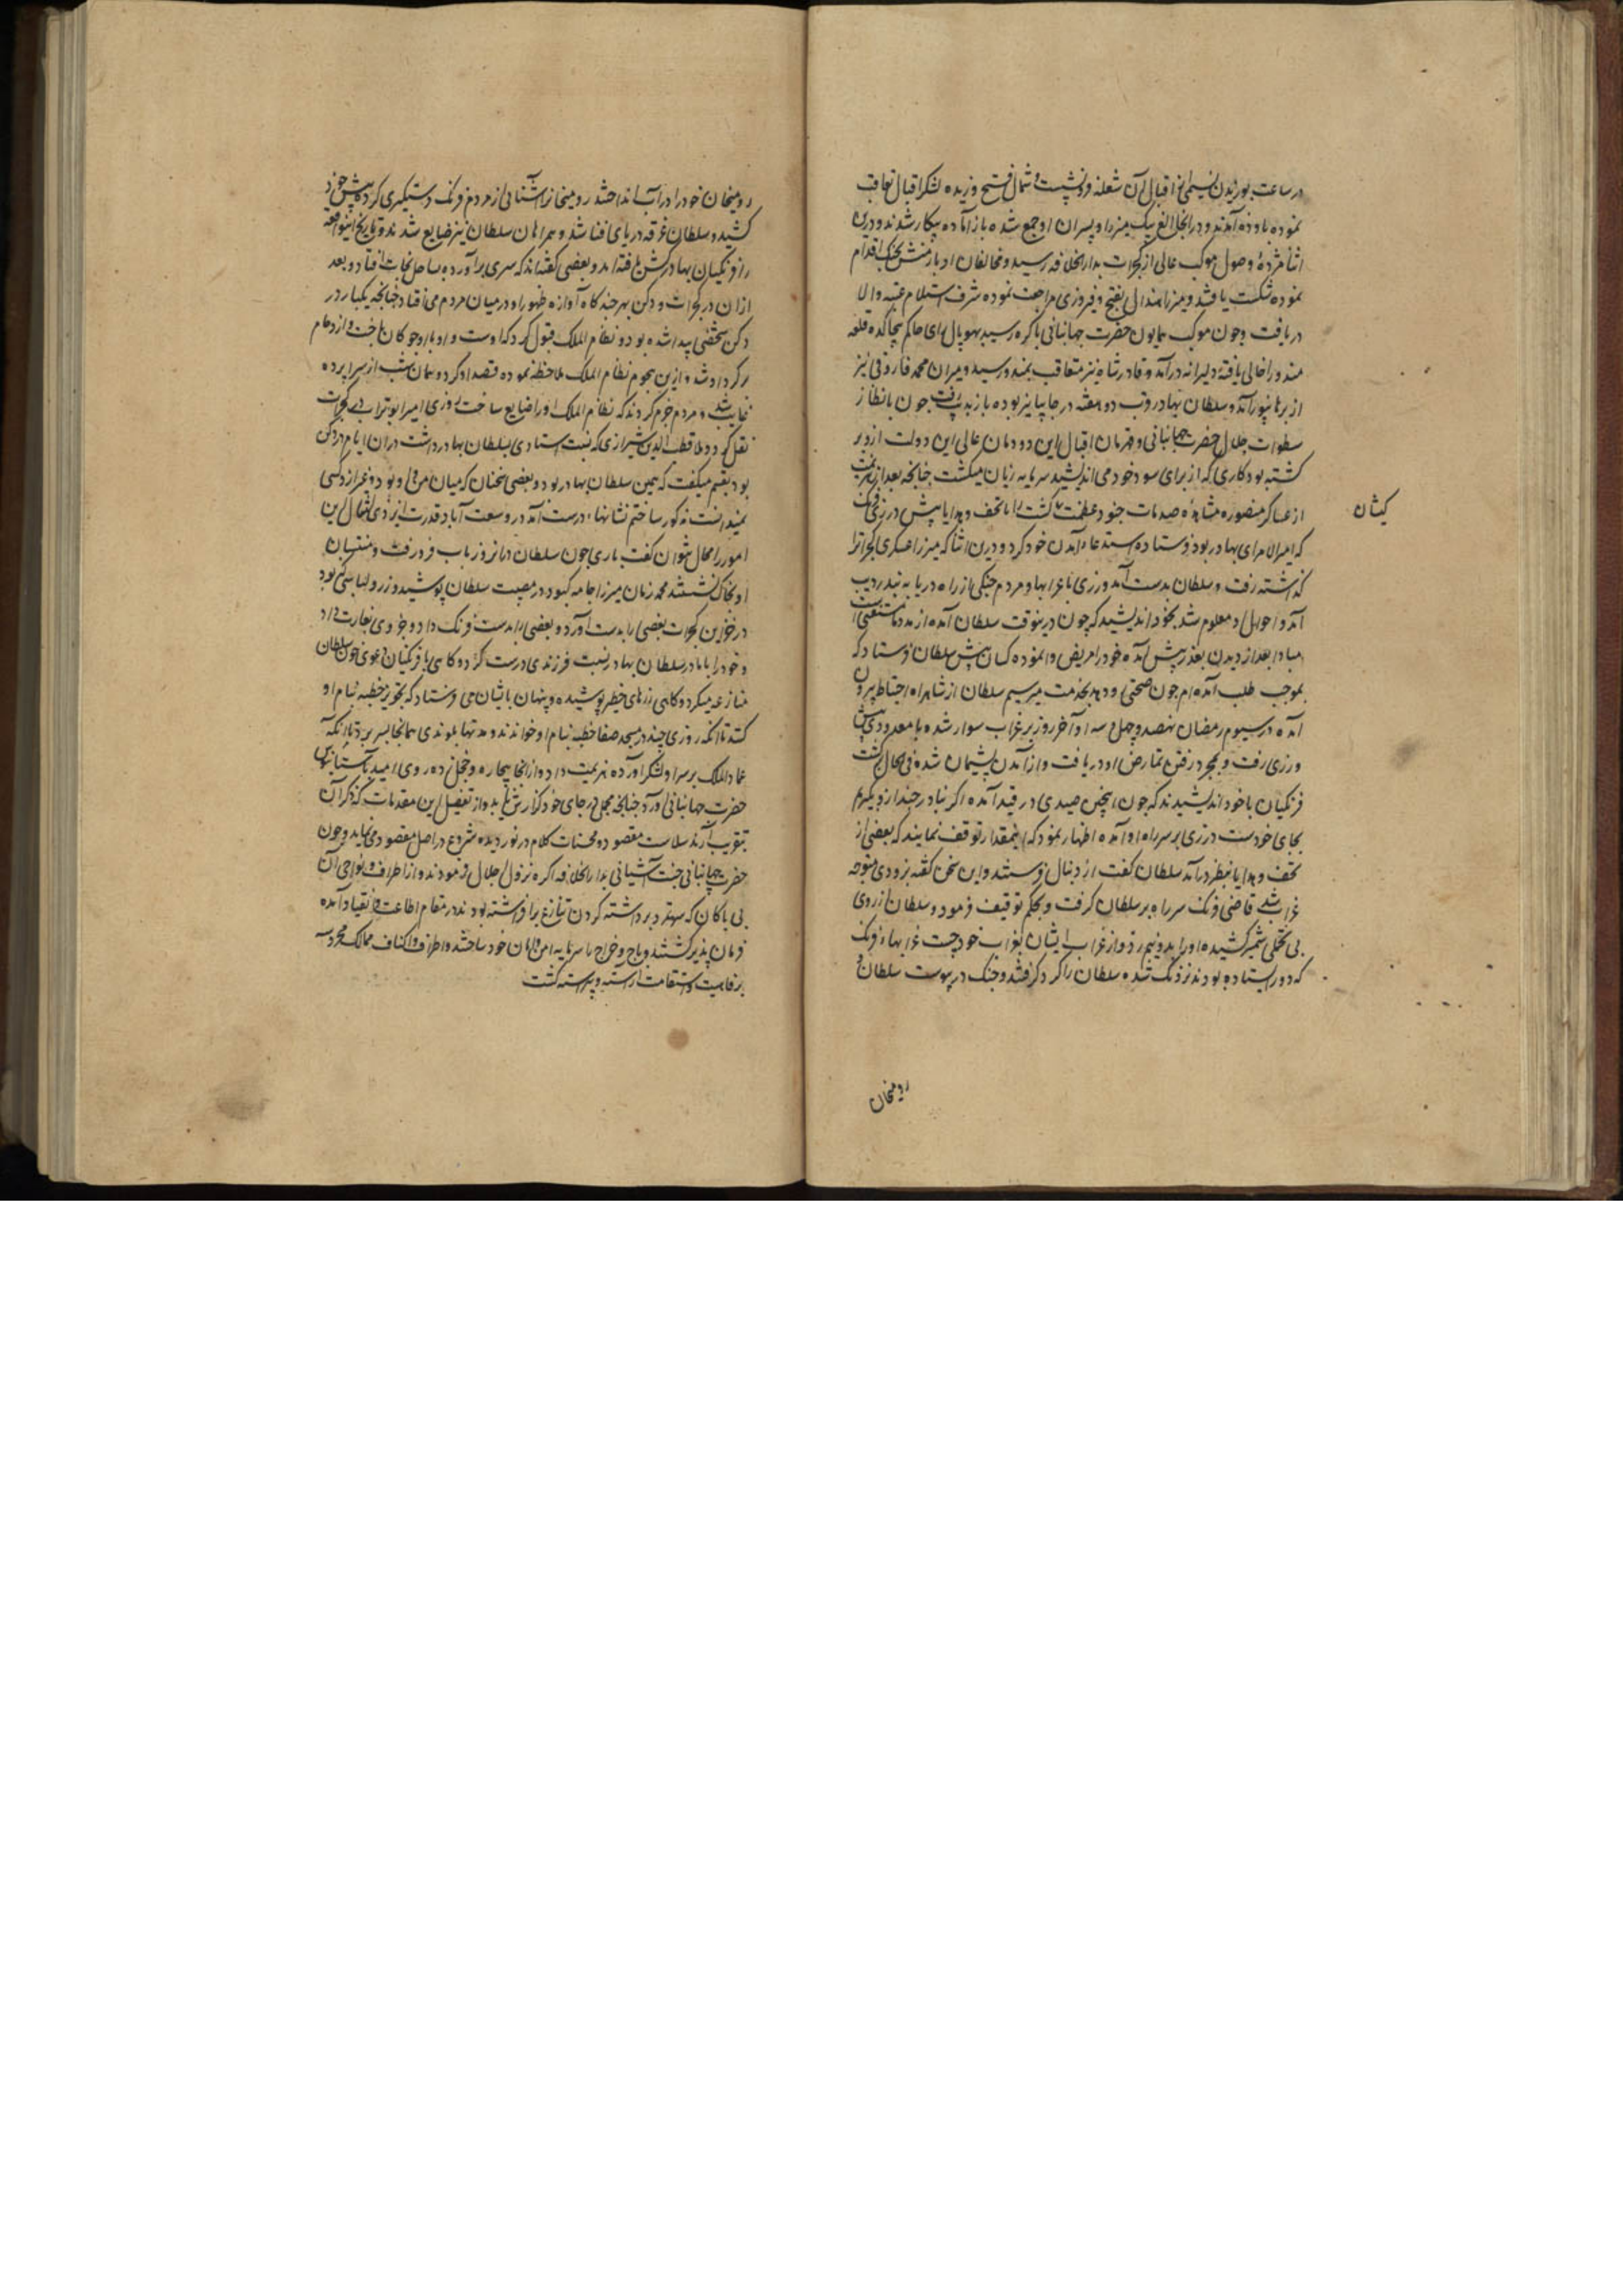 در ساعت بوزیدن نسیمی از اقبال آن شعله فرو نشست و شمال فتح وزیده لشکر اقبال تعاقب
نموده باوده آمدند و در انجا الغ بیک میرزا و پسران او جمع شده باز آماده پیکار شدند و درین
اثنا مژدهٔ وصول موکب عالی از کجرات بدارالخلافه رسید و مخالفان ادبار منش بجنک اقدام
نموده شکست یافتند و میرزا هندال بفتح و فیروزی مراجعت نموده شرف استلام عتبهٔ والا
دریافت و چون موکب همایون حضرت جهانبانی باکره رسید بهوپال رای حاکم بیجاکده قلعه
مندو را خالی یافته دلیرانه درآمد و قادر شاه نیز متعاقب بمندو رسید و میران محمد فاروقی نیز
از برهانپور آمد و سلطان بهادر قرب دو هفته در جاپانیر بوده باز بدیپ رفت چون بانظار
سطوات جلال حضرت جهانبانی و قهرمان اقبال این دودمان عالی این دولت ازو بر
کشته بود کاری که از برای سود خود می اندیشید سرمایه زیان میکشت چنانچه بعد از هزیمت
از عساکر منصوره مشاهدهٔ صدمات جنود عظمت کسان را با تحف و هدایا پیش ورزی فرنک
کیشان
که امیرالامرای بهادر بود فرستاده استدعاء آمدن خود کرد و درین اثنا که میرزا عسکری کجرات را
کذاشته رفت و سلطان بدست آمد ورزی با غرابها و مردم جنکی از راه دریا به بندر دیب
آمد و احوال او معلوم شد بخود اندیشید که چون درینوقت سلطان آمده از مدد ما مستغنی است
مبادا بعد از دیدن بغدر پیش آمده خود را مریض وا نموده کسان پیش سلطان فرستاد که
بموجب طلب آمده ام چون صحتی رو دهد بخدمت میرسیم سلطان از شاهراه احتیاط بیرون
آمده در سیوم رمضان نهصد و چهل و سه او آخر روز بر غراب سوار شده با معدودی پیش
ورزی رفت و بمجرد رفتن تمارض او دریافت و از آمدن پشیمان شده فی الحال برکشت
فرنکیان با خود اندیشیدند که چون اینچنین صیدی در قید آمده اکر بنادر چند ازو بکیریم
بجای خودست ورزی بر سر راه او آمده اظهار نمود که اینمقدار توقف نمایند که بعضی از
تحف و هدایا بنظر درآید سلطان کفت از دنبال فرستند و این سخن کفته بزودی متوجه
غراب شد قاضی فرنک سر راه بر سلطان کرفت و بحکم توقیف فرمود و سلطان از روی
بی تحملی شمشیر کشیده او را بدو نیم زد و از غراب ایشان بغراب خود جست غرابهاء فرنک
که دور ایستاده بودند نزدیک شده سلطان را کرد کرفتند و جنک در پیوست سلطان و
رومیخان
رومیخان خود را در آب انداختند رومیخان را آشنائی از مردم فرنک دستکیری کرد پیش خود
کشید و سلطان غرقه دریای فنا شد و همراهان سلطان نیز ضایع شدند و تاریخ اینواقعه
را فرنکیان بهادر کش یافته اند و بعضی کفته اند که سری برآورده بساحل نجات افتاد و بعد
ازان در کجرات و دکن بهر چند کاه آوازه ظهور او در میان مردم می افتاد چنانچه یکبار در
دکن شخصی پیدا شده بود و نظام الملک قبول کرد که اوست و او با او چوکان باخت و ازدحام
بر کرد او شد و ازین هجوم نظام الملک ملاحظه نموده قصد او کرد و همان شب از سراپرده
غایب شد و مردم جزم کردند که نظام الملک او را ضایع ساخت روزی امیر ابوتراب در کجرات
نقل کرد و ملا قطب الدین شیرازی که نسبت استادی بسلطان بهادر داشت دران ایام در دکن
بود بقسم میکفت که همین سلطان بهادر بود و بعضی سخنان که میان من و او بود و غیر از و کسی
نمیدانست مذکور ساختم نشانها درست آمد در وسعت آباد قدرت ایزدی امثال این
امور را محال نتوان کفت باری چون سلطان درانروز بآب فرو رفت و منتسبان
او بخاک نشستند محمد زمان میرزا جامه کبود در مصیبت سلطان پوشید و زر و لباسی که بود
در خزاین کجرات بعضی را بدست آورد و بعضی را بدست فرنک داد و جزوی بغارت داد
و خود را بمادر سلطان بهادر نسبت فرزندی درست کرد و کاهی با فرنکیان دعوی خون سلطان
منازعه میکرد و کاهی زرهای خطیر پوشیده و پنهان بایشان می فرستاد که تجویز خطبه بنام او
کنند تا انکه روزی چند در مسجد صفا خطبه بنام او خواندند و مدتها بلوندی همانجا بسر برد تا آنکه
عمادالملک بر سر او لشکر آورده هزیمت داد و از انجا بیچاره و خجل زده روی امید بآستانبوس
حضرت جهانبانی آورد چنانچه مجملی در جای خود کزارش یابد و از تفصیل این مقدمات که ذکر آن
بتقریب آرند سلاست مقصود و محسنات کلام در نوردیده شروع در اصل مقصود می نماید و چون
حضرت جهانبانی جنت آشیانی بدارالخلافه اکره نزول اجلال فرمودند و از اطراف و نواحی آن
بی باکان که سر تمرد برداشته کردن تنازع برافراشته بودند در مقام اطاعت و انقیاد آمده
فرمان پذیر کشتند و باج و خراج را سرمایه امن و امان خود ساختند و اطراف و اکناف ممالک محروسه
برفاهیت و استقامت آراسته و پیراسته کشت